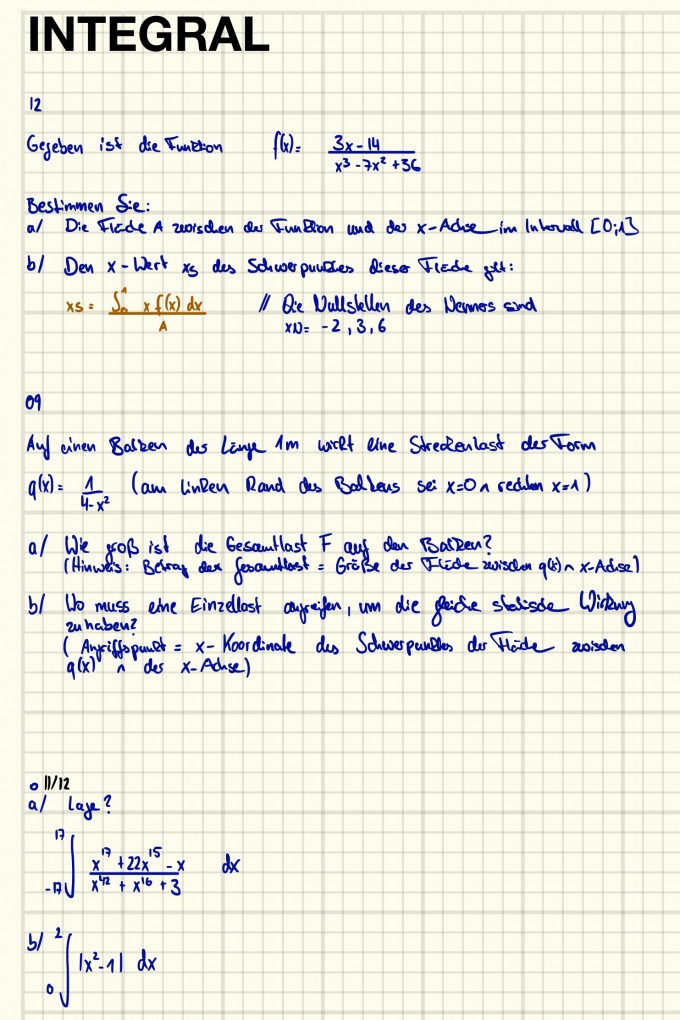 INTEGRAL
12
Gegeben ist die Funktion f(x)= 3x-14 / x³-7x²+36
Bestimmen Sie:
a/ Die Fläche A zwischen der Funktion und der x-Achse im Intervall [0;1]
b/ Den x-Wert xs des Schwerpunktes dieser Fläche gilt:
xs = ∫₀¹ x f(x) dx / A // Die Nullstellen des Nenners sind
xN= -2, 3, 6
09
Auf einen Balken der Länge 1m wirkt eine Streckenlast der Form
q(x)= 1 / 4-x² (am linken Rand des Balkens sei x=0 ∧ rechten x=1)
a/ Wie groß ist die Gesamtlast F auf den Balken?
(Hinweis: Betrag der Gesamtlast = Größe der Fläche zwischen q(x) ∧ x-Achse)
b/ Wo muss eine Einzellast angreifen, um die gleiche statische Wirkung
zu haben?
(Angriffspunkt = x-Koordinate des Schwerpunktes der Fläche zwischen
q(x) ∧ der x-Achse)
o 11/12
a/ Lage?
∫₋₁₇¹⁷ x¹⁷+22x¹⁵-x / x⁴²+x¹⁶+3 dx
b/ ∫₀² |x²-1| dx